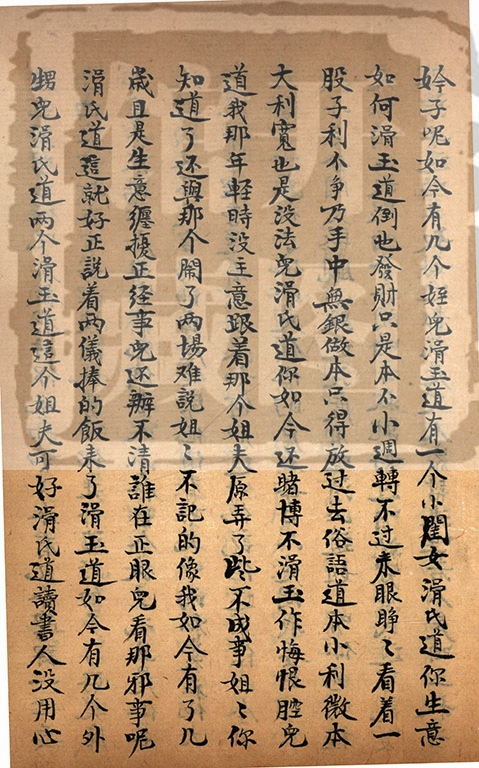 妗子呢如今有几个姪児滑玉道有一个小閨女滑氏道你生意
如何滑玉道倒也發財只是本不小週轉不过来眼睁〻看着一
股子利不争乃手中無銀做本只得放过去俗語道本小利微本
大利寛也是没法児滑氏道你如今还賭博不滑玉作悔恨腔児
道我那年軽時没主意跟着那个姐夫原弄了些不成事姐〻你
知道了还與那个鬧了两場难説姐〻不記的像我如今有了几
歳且是生意纒擾正経事児还辦不清誰在正眼児看那邪事呢
滑氏道這就好正説着两儀捧的飯来了滑玉道如今有几个外
甥児滑氏道两个滑玉道這个姐夫可好滑氏道讀書人没用心